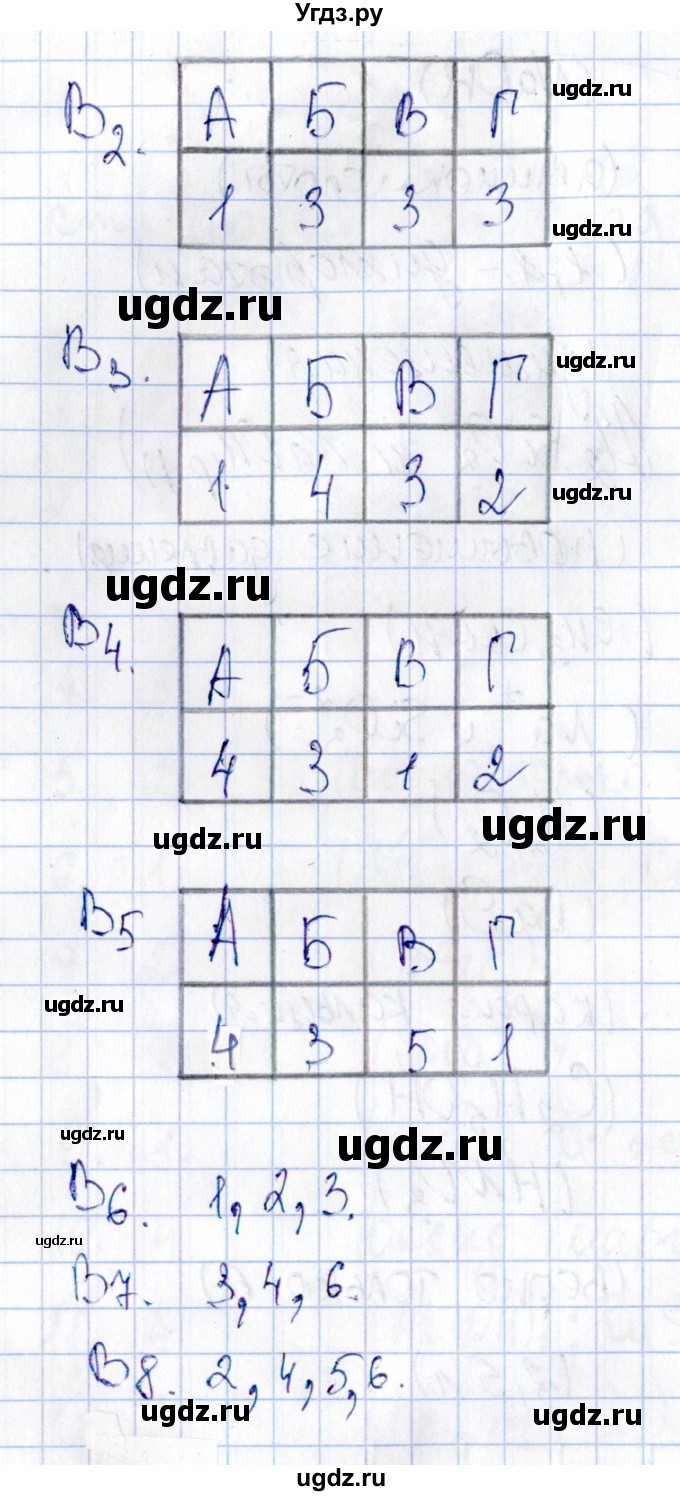 Угдз.ру
В2. А Б В Г
ugdz.ru
1 3 3 3
ugdz.ru
ugdz.ru
В3. А Б В Г
ugdz.ru
1 4 3 2
ugdz.ru
ugdz.ru
В4. А Б В Г
4 3 1 2
ugdz.ru
ugdz.ru
В5 А Б В Г
ugdz.ru
4 3 5 1
ugdz.ru
ugdz.ru
В6. 1, 2, 3.
ugdz.ru
В7. 3, 4, 6.
В8. 2, 4, 5, 6.
ugdz.ru
ugdz.ru
ugdz.ru